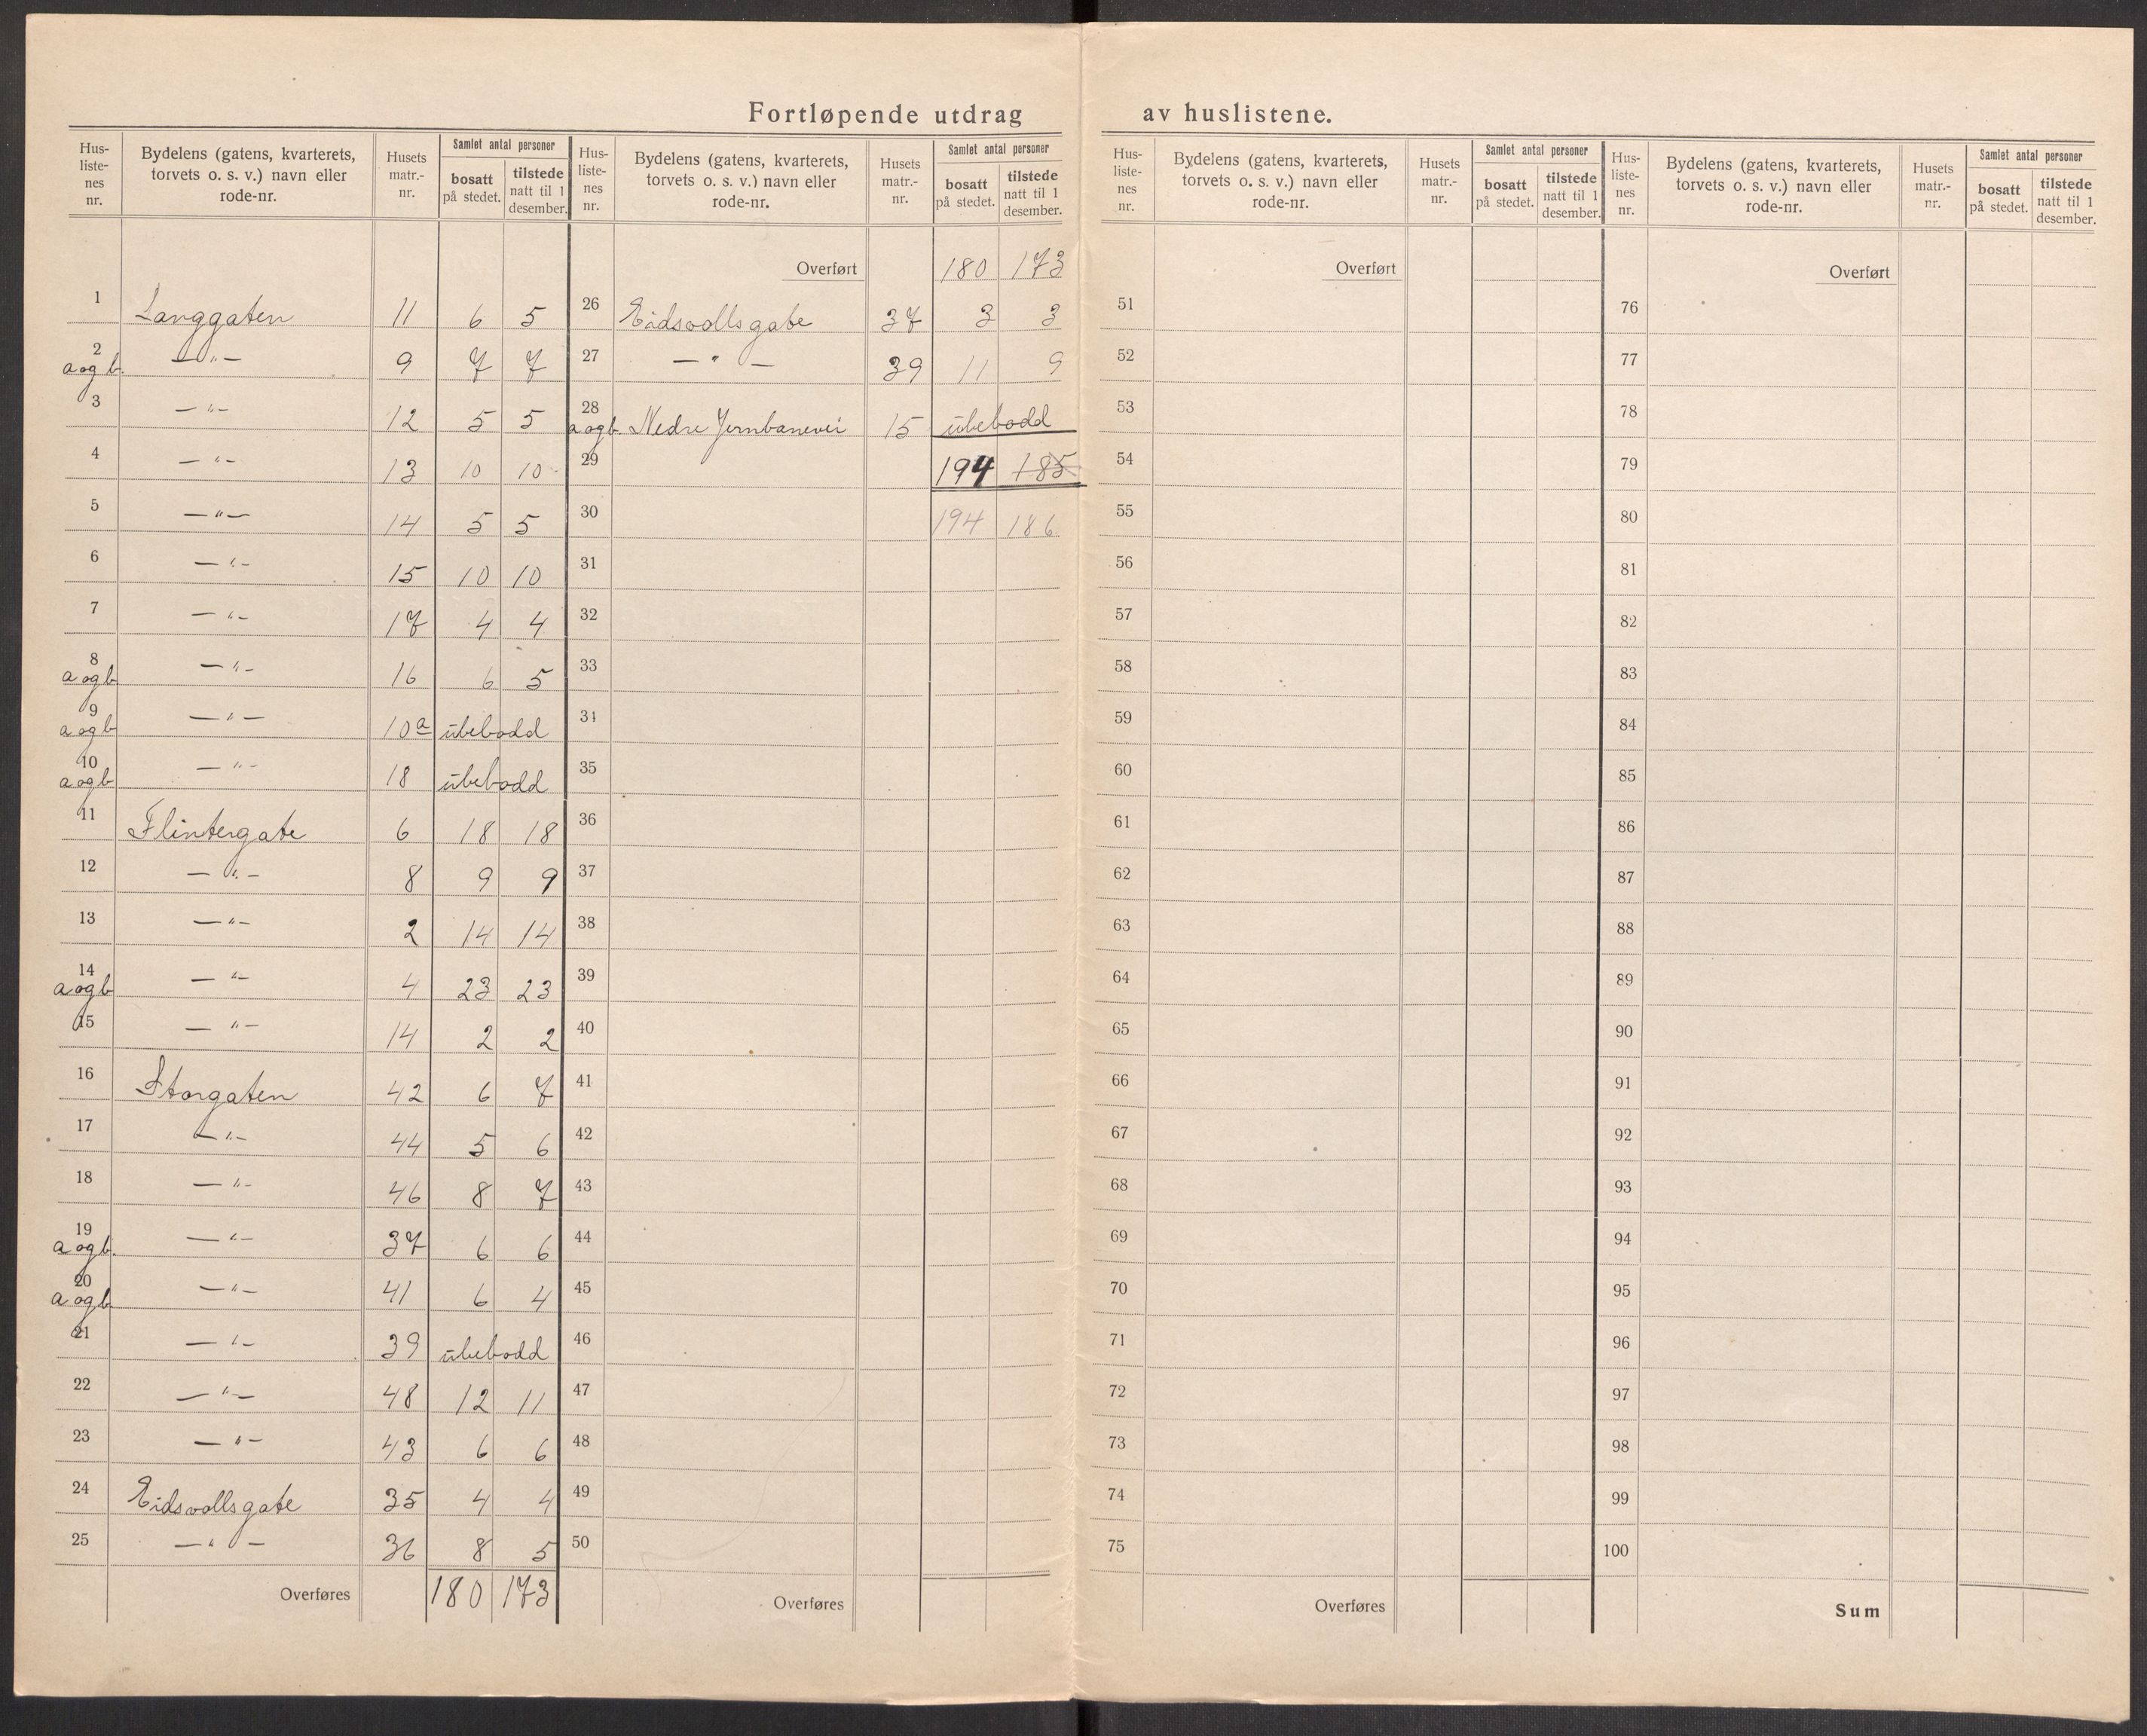 Fortløpende utdrag av huslistene.
Hus-liste-nes nr. | Bydelens (gatens, kvarterets, torvets o. s. v.) navn eller rode-nr. | Husets matr.-nr. | Samlet antal personer | bosatt på stedet. | tilstede natt til 1 desember.
1 Langgaten 11 6 5
2 a og b. —"— 9 7 7
3 —"— 12 5 5
4 —"— 13 10 10
5 —"— 14 5 5
6 —"— 15 10 10
7 —"— 17 4 4
8 a og b —"— 16 6 5
9 a og b —"— 10a ubebodd
10 a og b —"— 18 ubebodd
11 Flintergate 6 18 18
12 —"— 8 9 9
13 —"— 2 14 14
14 a og b —"— 4 23 23
15 —"— 14 2 2
16 Storgaten 42 6 7
17 —"— 44 5 6
18 —"— 46 8 7
19 a og b. —"— 37 6 6
20 a og b —"— 41 6 4
21 —"— 39 ubebodd
22 —"— 48 12 11
23 —"— 43 6 6
24 Eidsvollsgate 35 4 4
25 —"— 36 8 5
Overføres 180 173
Hus-liste-nes nr. | Bydelens (gatens, kvarterets, torvets o. s. v.) navn eller rode-nr. | Husets matr.-nr. | Samlet antal personer | bosatt på stedet. | tilstede natt til 1 desember.
Overført 180 173
26 Eidsvollsgate 37 3 3
27 —"— 39 11 9
28 a og b. Nedre Jernbanevei 15 ubebodd
29 194 185
30 194 186
31
32
33
34
35
36
37
38
39
40
41
42
43
44
45
46
47
48
49
50
Overføres
Hus-liste-nes nr. | Bydelens (gatens, kvarterets, torvets o. s. v.) navn eller rode-nr. | Husets matr.-nr. | Samlet antal personer | bosatt på stedet. | tilstede natt til 1 desember.
Overført
51
52
53
54
55
56
57
58
59
60
61
62
63
64
65
66
67
68
69
70
71
72
73
74
75
Overføres
Hus-liste-nes nr. | Bydelens (gatens, kvarterets, torvets o. s. v.) navn eller rode-nr. | Husets matr.-nr. | Samlet antal personer | bosatt på stedet. | tilstede natt til 1 desember.
Overført
76
77
78
79
80
81
82
83
84
85
86
87
88
89
90
91
92
93
94
95
96
97
98
99
100
Sum